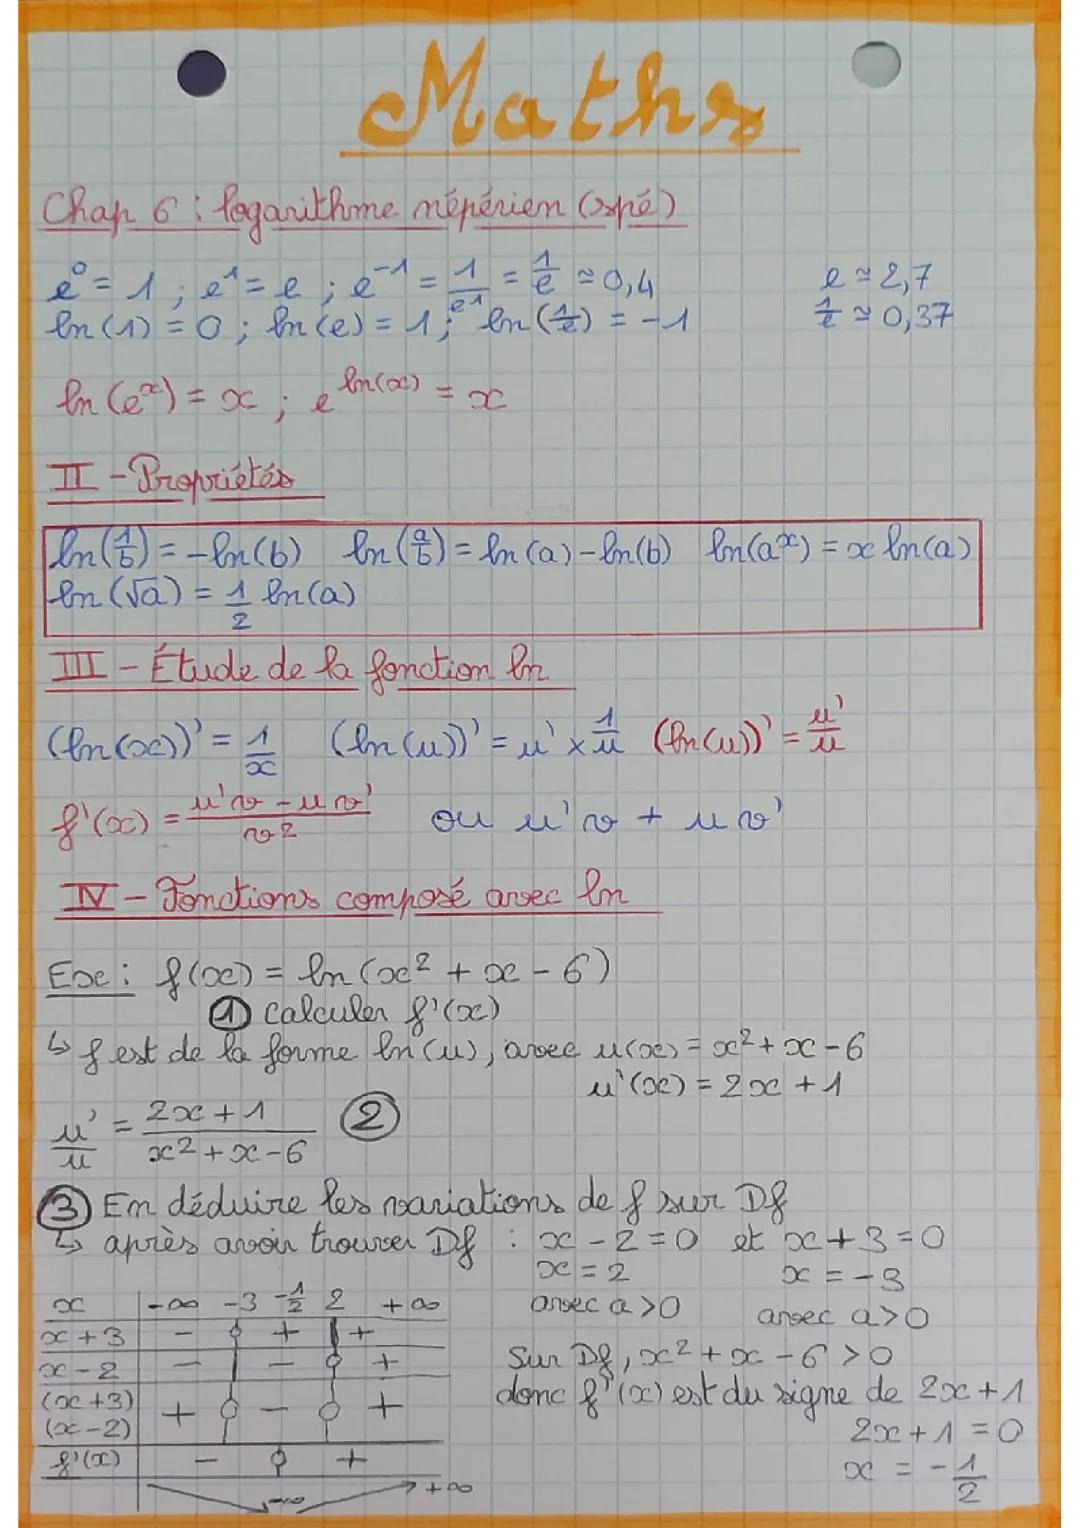 Maths
Chap 6 : logarithme népérien (spé)
e⁰ = 1 ; e¹ = e ; e⁻¹ = 1/e¹ = 1/e ≃ 0,4    e ≃ 2,7
ln(1) = 0 ; ln(e) = 1 ; ln(1/e) = -1    1/e ≃ 0,37
ln(eˣ) = x ; e^ln(x) = x
II - Propriétés
ln(1/b) = -ln(b)  ln(a/b) = ln(a) - ln(b)  ln(aˣ) = x ln(a)
ln(√a) = 1/2 ln(a)
III - Étude de la fonction ln
(ln(x))' = 1/x  (ln(u))' = u' × 1/u  (ln(u))' = u'/u
f'(x) = (u'v - uv')/v²  ou u'v + uv'
IV - Fonctions composé avec ln
Ex : f(x) = ln(x² + x - 6)
① calculer f'(x)
↳ f est de la forme ln(u), avec u(x) = x² + x - 6
u'(x) = 2x + 1
u'/u = (2x + 1)/(x² + x - 6)  ②
③ En déduire les variations de f sur Df
↳ après avoir trouver Df : x - 2 = 0 et x + 3 = 0
x = 2    x = -3
avec a > 0    avec a > 0
x | -∞ -3 -1/2 2 +∞
x + 3 | - 0 + | +
x - 2 | - | - 0 +
(x + 3)
(x - 2) | + 0 - 0 +
f'(x) | - 0 +
-∞ +∞
Sur Df, x² + x - 6 > 0
donc f'(x) est du signe de 2x + 1
2x + 1 = 0
x = -1/2